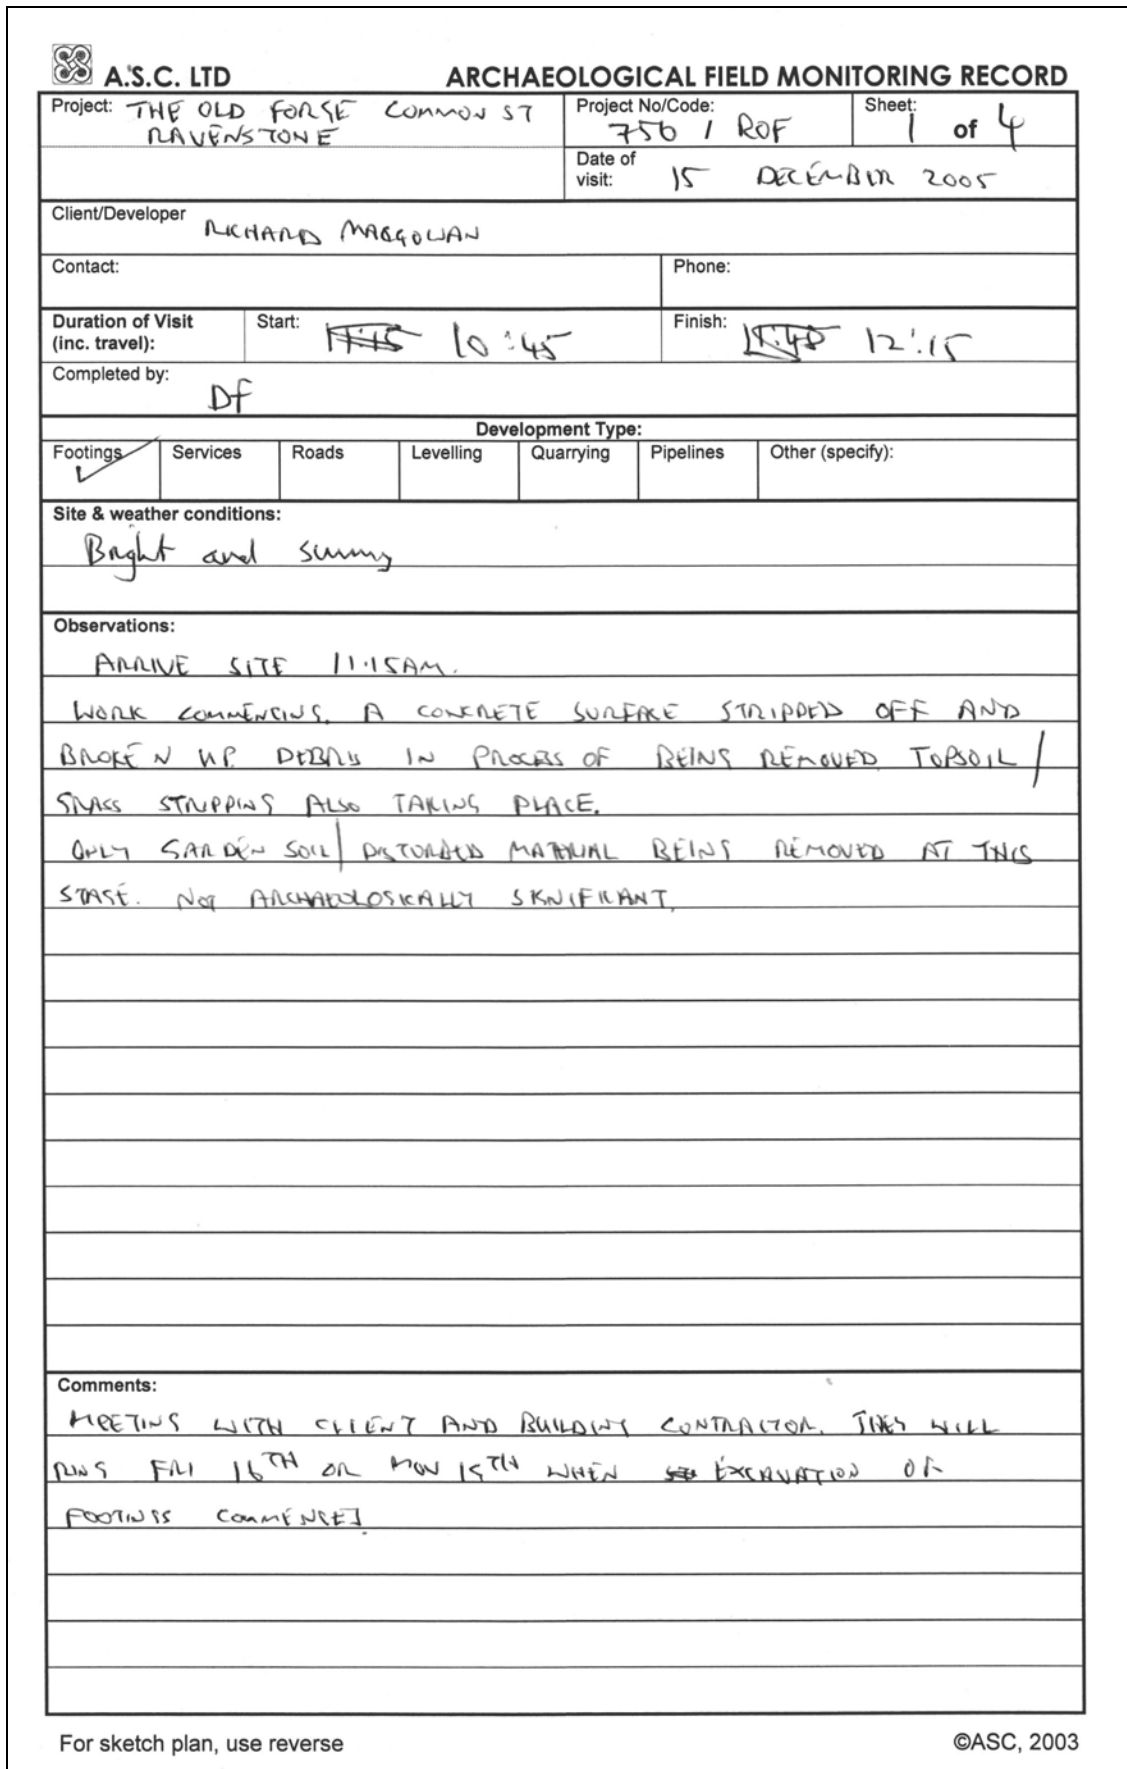 A.S.C. LTD ARCHAEOLOGICAL FIELD MONITORING RECORD
Project: THE OLD FORGE COMMON ST
RAVENSTONE
Project No/Code: 756 / ROF
Sheet: 1 of 4
Date of visit: 15 DECEMBER 2005
Client/Developer RICHARD MACGOWAN
Contact: Phone:
Duration of Visit (inc. travel): Start: 11:15 10:45 Finish: 11:45 12:15
Completed by: DF
Development Type:
Footings ✓ Services Roads Levelling Quarrying Pipelines Other (specify):
Site & weather conditions:
Bright and sunny
Observations:
ARRIVE SITE 11.15AM.
WORK COMMENCING. A CONCRETE SURFACE STRIPPED OFF AND
BROKEN UP. DEBRIS IN PROCESS OF BEING REMOVED. TOPSOIL /
GRASS STRIPPING ALSO TAKING PLACE.
ONLY GARDEN SOIL / DISTURBED MATERIAL BEING REMOVED AT THIS
STAGE. NOT ARCHAEOLOGICALLY SIGNIFICANT.
Comments:
MEETING WITH CLIENT AND BUILDING CONTRACTOR. THEY WILL
RING FRI 16TH OR MON 19TH WHEN EXCAVATION OF
FOOTINGS COMMENCES.
For sketch plan, use reverse ©ASC, 2003